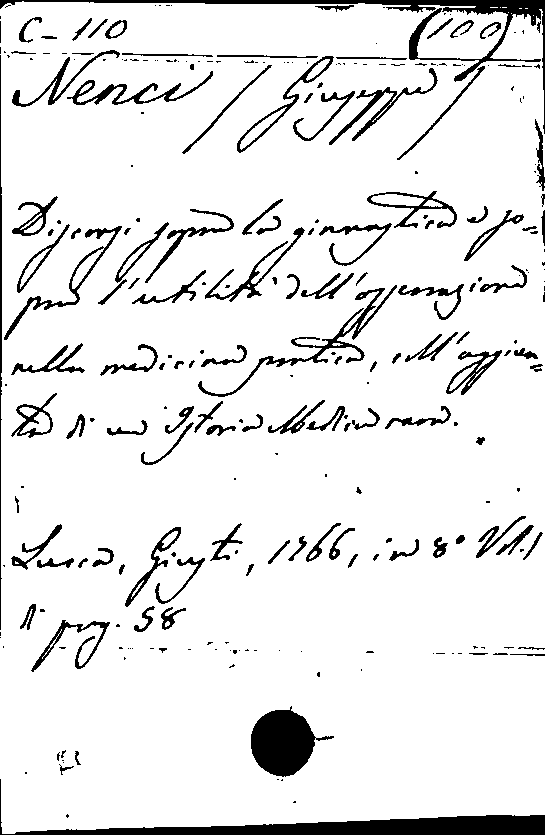 C-110 (100)
Nenci / Giuseppe /
Discorsi sopra la ginnastica e so=
pra l'utilità dell'osservazione
nella medicina pratica, coll'aggiun=
ta di un Istoria Medica rara.
Lucca, Giusti, 1766, in 8° Vol. 1
di pag. 58